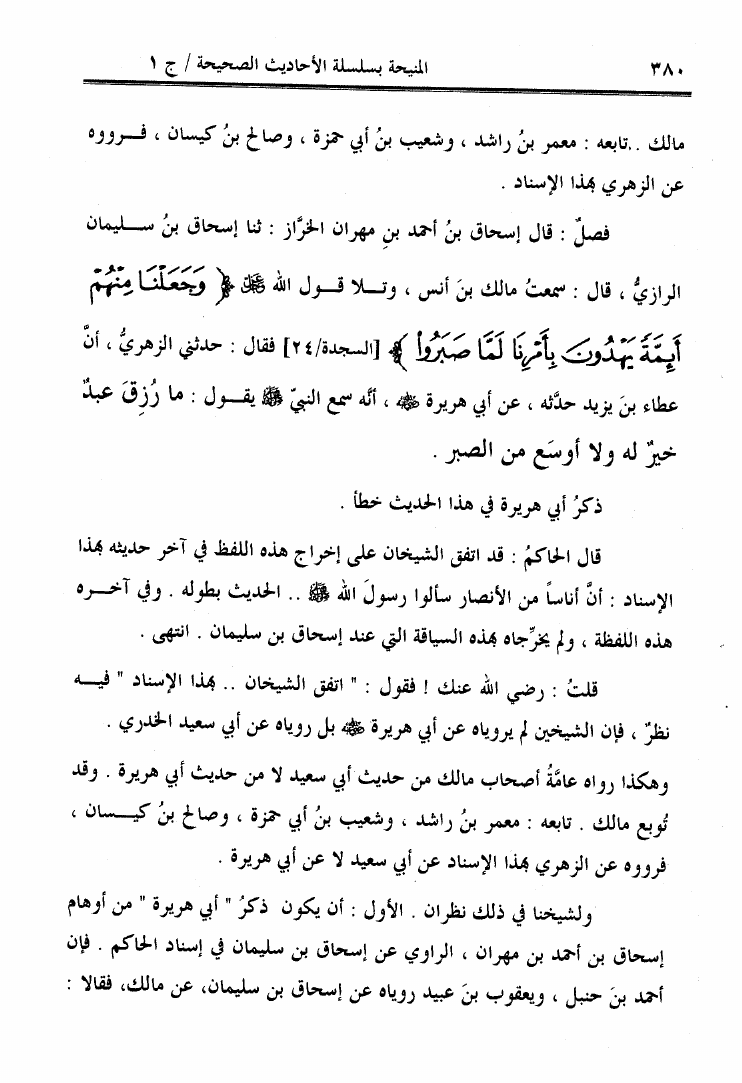 ٣٨٠ المنيحة بسلسلة الأحاديث الصحيحة / ج ١
مالك .. تابعه : معمر بنُ راشد ، وشعيب بنُ أبي حمزة ، وصالح بنُ كيسان ، فـرووه
عن الزهري بهذا الإسناد .
فصلٌ : قال إسحاق بنُ أحمد بنِ مهران الخرَّاز : ثنا إسحاق بنُ سليمان
الرازيُّ ، قال : سمعتُ مالك بنَ أنس ، وتـلا قـول الله ﷻ ﴿ وَجَعَلْنَا مِنْهُمْ
أَئِمَّةً يَهْدُونَ بِأَمْرِنَا لَمَّا صَبَرُوا ﴾ [السجدة/٢٤] فقال : حدثني الزهريُّ ، أنَّ
عطاء بنَ يزيد حدَّثه ، عن أبي هريرة ﷺ ، أنَّه سمع النبيّ ﷺ يقـول : ما رُزِقَ عبدٌ
خيرٌ له ولا أوسَع من الصبر .
ذكرُ أبي هريرة في هذا الحديث خطأ .
قال الحاكمُ : قد اتفق الشيخان على إخراج هذه اللفظ في آخر حديثه بهذا
الإسناد : أنَّ أناساً من الأنصار سألوا رسولَ الله ﷺ .. الحديث بطوله . وفي آخـره
هذه اللفظة ، ولم يخرِّجاه بهذه السياقة التي عند إسحاق بن سليمان . انتهى .
قلتُ : رضي الله عنك ! فقول : " اتفق الشيخان .. بهذا الإسناد " فيـه
نظرٌ ، فإن الشيخين لم يروياه عن أبي هريرة ﷺ بل روياه عن أبي سعيد الخدري .
وهكذا رواه عامَّةُ أصحاب مالك من حديث أبي سعيد لا من حديث أبي هريرة . وقد
تُوبع مالك . تابعه : معمر بنُ راشد ، وشعيب بنُ أبي حمزة ، وصالح بنُ كيـسان ،
فرووه عن الزهري بهذا الإسناد عن أبي سعيد لا عن أبي هريرة .
ولشيخنا في ذلك نظران . الأول : أن يكون ذكرُ " أبي هريرة " من أوهام
إسحاق بن أحمد بن مهران ، الراوي عن إسحاق بن سليمان في إسناد الحاكم . فإن
أحمد بنَ حنبل ، ويعقوب بنَ عبيد روياه عن إسحاق بن سليمان، عن مالك، فقالا :